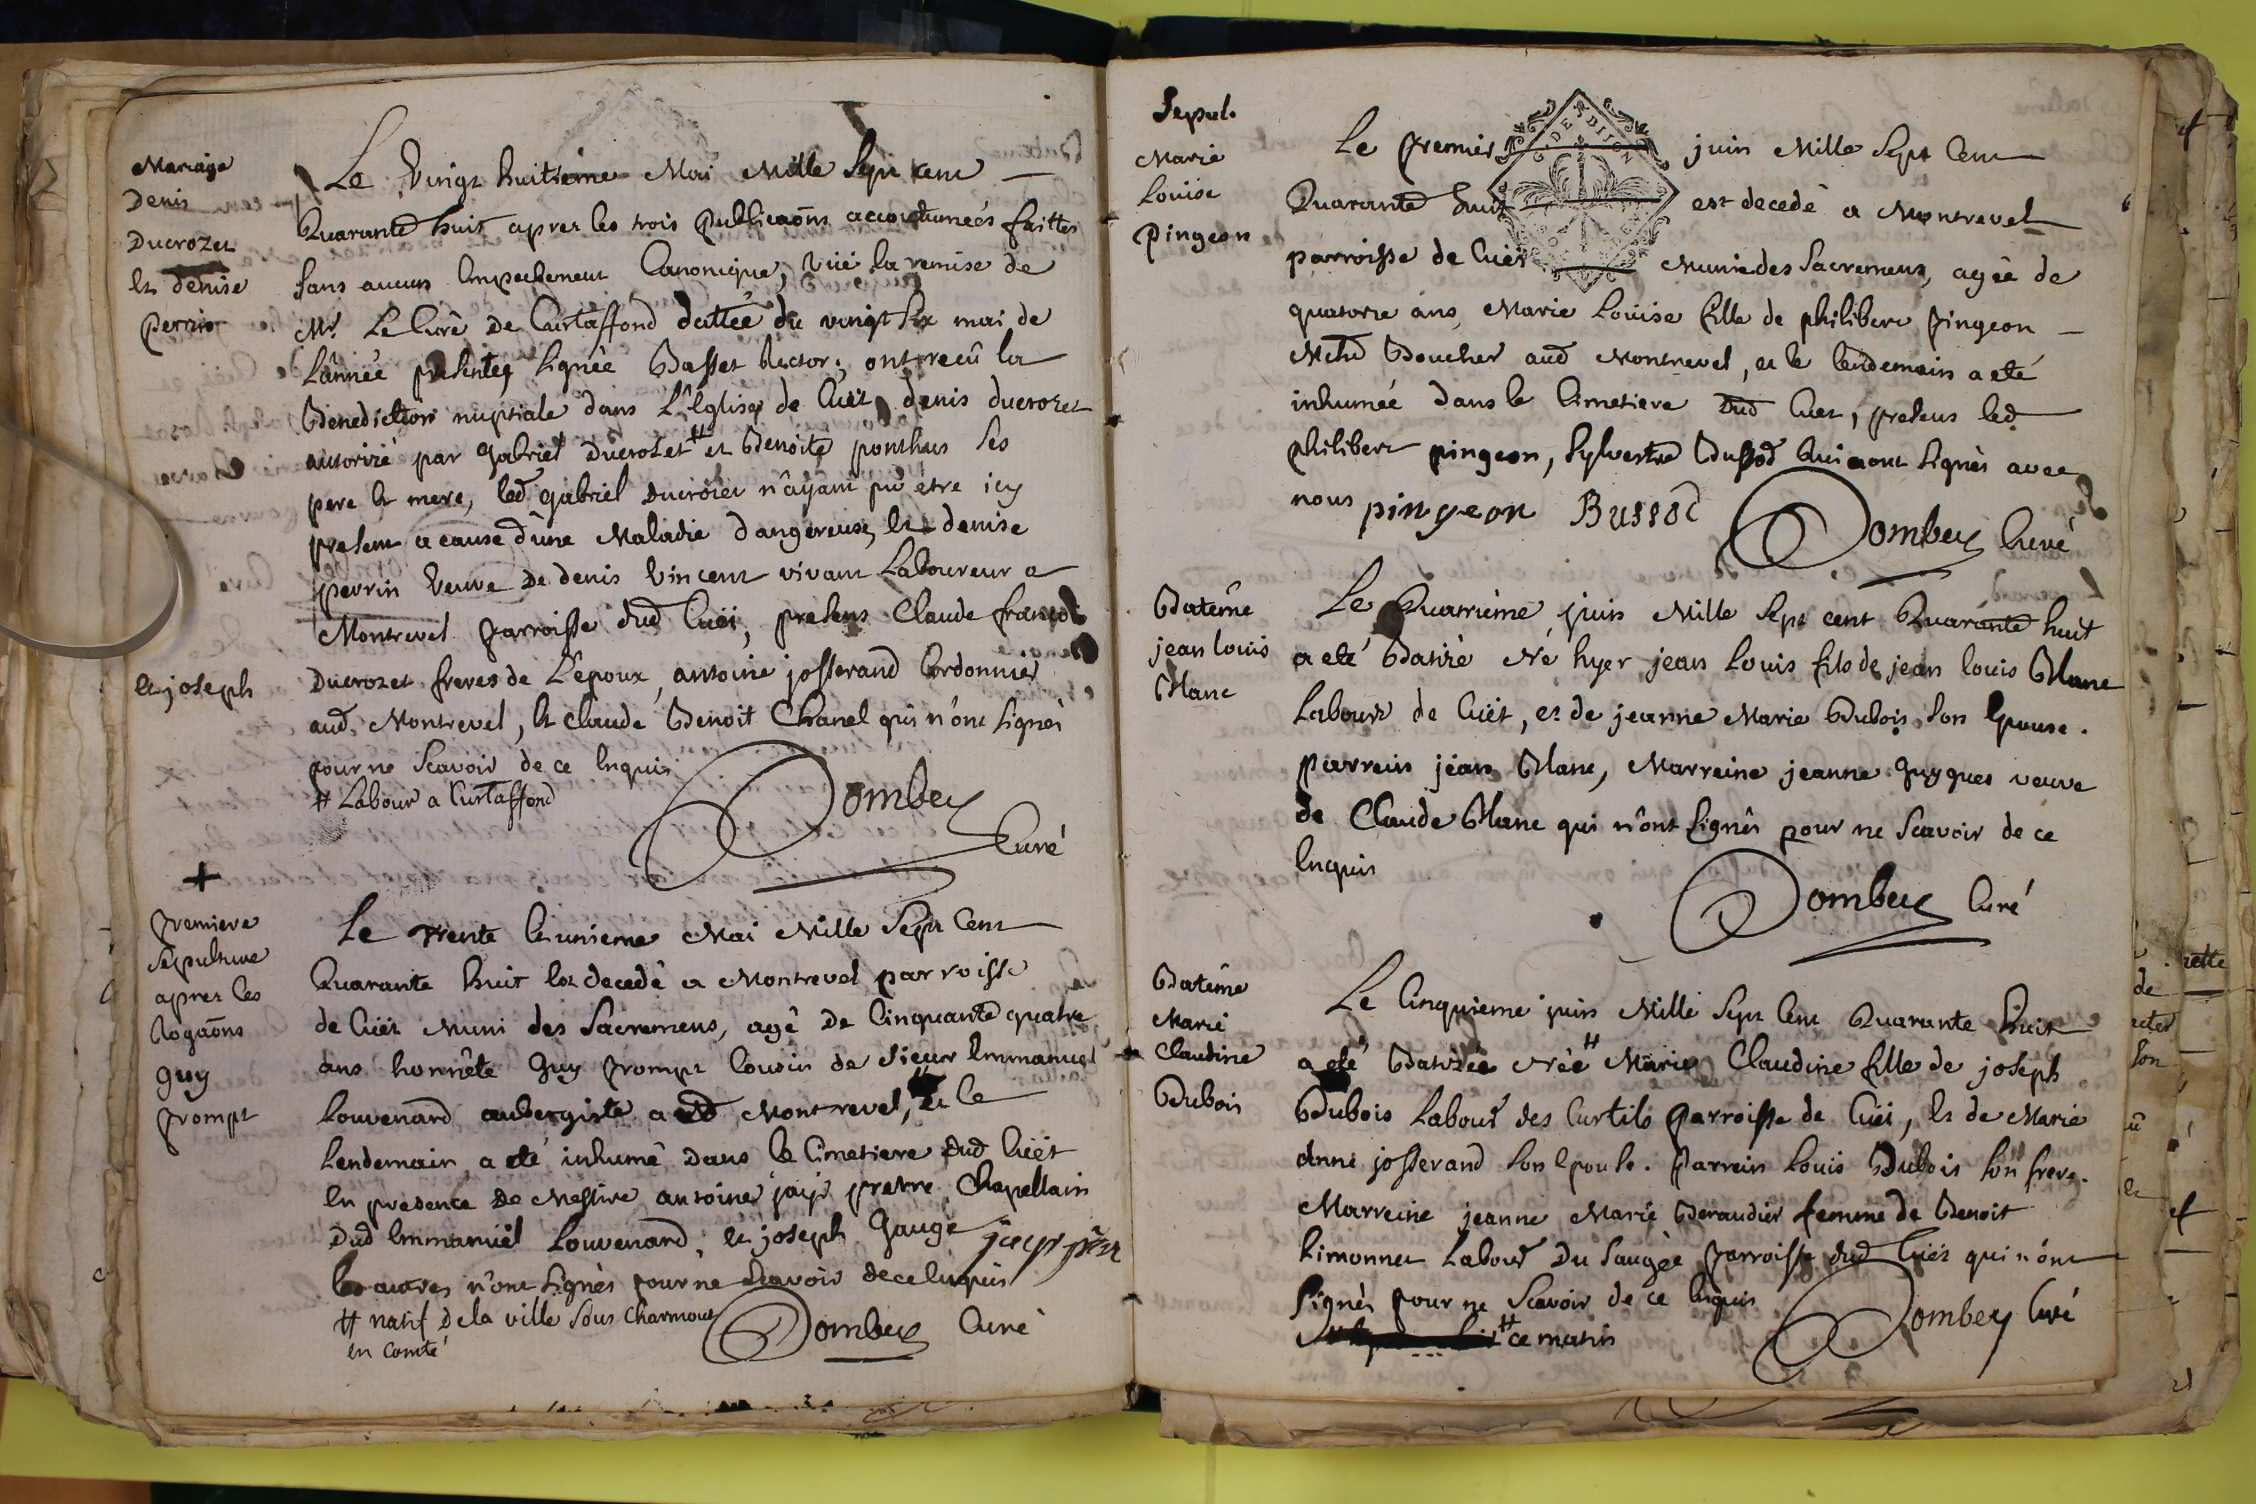 Mariage
Denis
Ducrozet
et denise
perrin
Le vingt huitième Mai Mille Sept cent
Quarante huit apres les trois Publicaõns accoutumeés faittes
sans aucun Empechement Canonique, vüe la remise de
Mr Le Curé De Curtaffond dattée du vingt six mai de
L'année presente, signée Basset Rector, ont recû la
Benediction nuptiale dans L'Eglise de Cuet denis ducrozet
autorizé par gabriel Ducrozet # et Benoite ponthus ses
pere et mere, led gabriel ducrozet n'ayant pû etre icy
present a cause d'une Maladie dangereuse, et denise
perrin Veuve De denis Vincent vivant Laboureur a
Montrevel parroisse dud Cuët, presens Claude françois
et joseph
Ducrozet freres de L'epoux, antoine josserand Cordonnier
aud Montrevel, et claude Benoit Chanel qui n'ont signés
pour ne Scavoir de ce Enquis
# Labour a Curtaffond
Dombey
Curé
+
premiere
sepulture
apres les
Rogaõns
guy
prompt
Le trente et unieme Mai Mille Sept Cent
Quarante huit est decedé a Montrevel parroisse
de Cuët Muni des Sacremens, agé De Cinquante quatre
ans honnête guy prompt Cousin de sieur Emmanuel
Louvenard aubergiste a Montrevel, # et le
Lendemain a eté inhumé dans le Cimetiere dud Cuët
En presence De Messire antoine jayr pretre Chapellain
Dud Emmanuël Louvenard, et joseph Gauge jayr ptre
les autres n'ont signés pour ne scavoir de ce Enquis
# natif de la ville sous Charmout
en comté
Dombey Curé
Sepul.
Marie
Louise
Pingeon
G. DE DIJON
Le premier juin Mille Sept Cent
Quarante huit est decedé a Montrevel
parroisse de Cuët Munie des Sacremens, agée de
quatorze ans, Marie Louise fille de philibert pingeon
Mchd Boucher aud Montrevel, et le lendemain a eté
inhumée dans le Cimetiere dud Cuet, presens led
philibert pingeon, Sylvestre Bussod Qui ont signés avec
nous pingeon Bussod
Dombey Curé
Batême
jean louis
Blanc
Le Quatrième juin Mille Sept cent Quarante huit
a eté Batizé Né hyer jean Louis fils de jean louis Blanc
Labourr de Cuët, et de jeanne Marie Dubois son Epouse.
parrein jean Blanc, Marreine jeanne guygues veuve
de Claude Blanc qui n'ont signés pour ne Scavoir de ce
Enquis
Dombey Curé
Batême
Marie
Claudine
Dubois
Le Cinquieme juin Mille Sept Cent Quarante huit
a eté Batizée Née # Marie Claudine fille de joseph
Dubois Labour des Curtils parroisse de Cuët, et de Marie
anne josserand son Epouse. parrein Louis Dubois son frere.
Marreine jeanne Marie Beraudier femme de Benoit
Limonnet Labour Du Saugée parroisse dud Cuët qui n'ont
signés pour ne Scavoir de ce Enquis
# ce matin
Dombey Curé